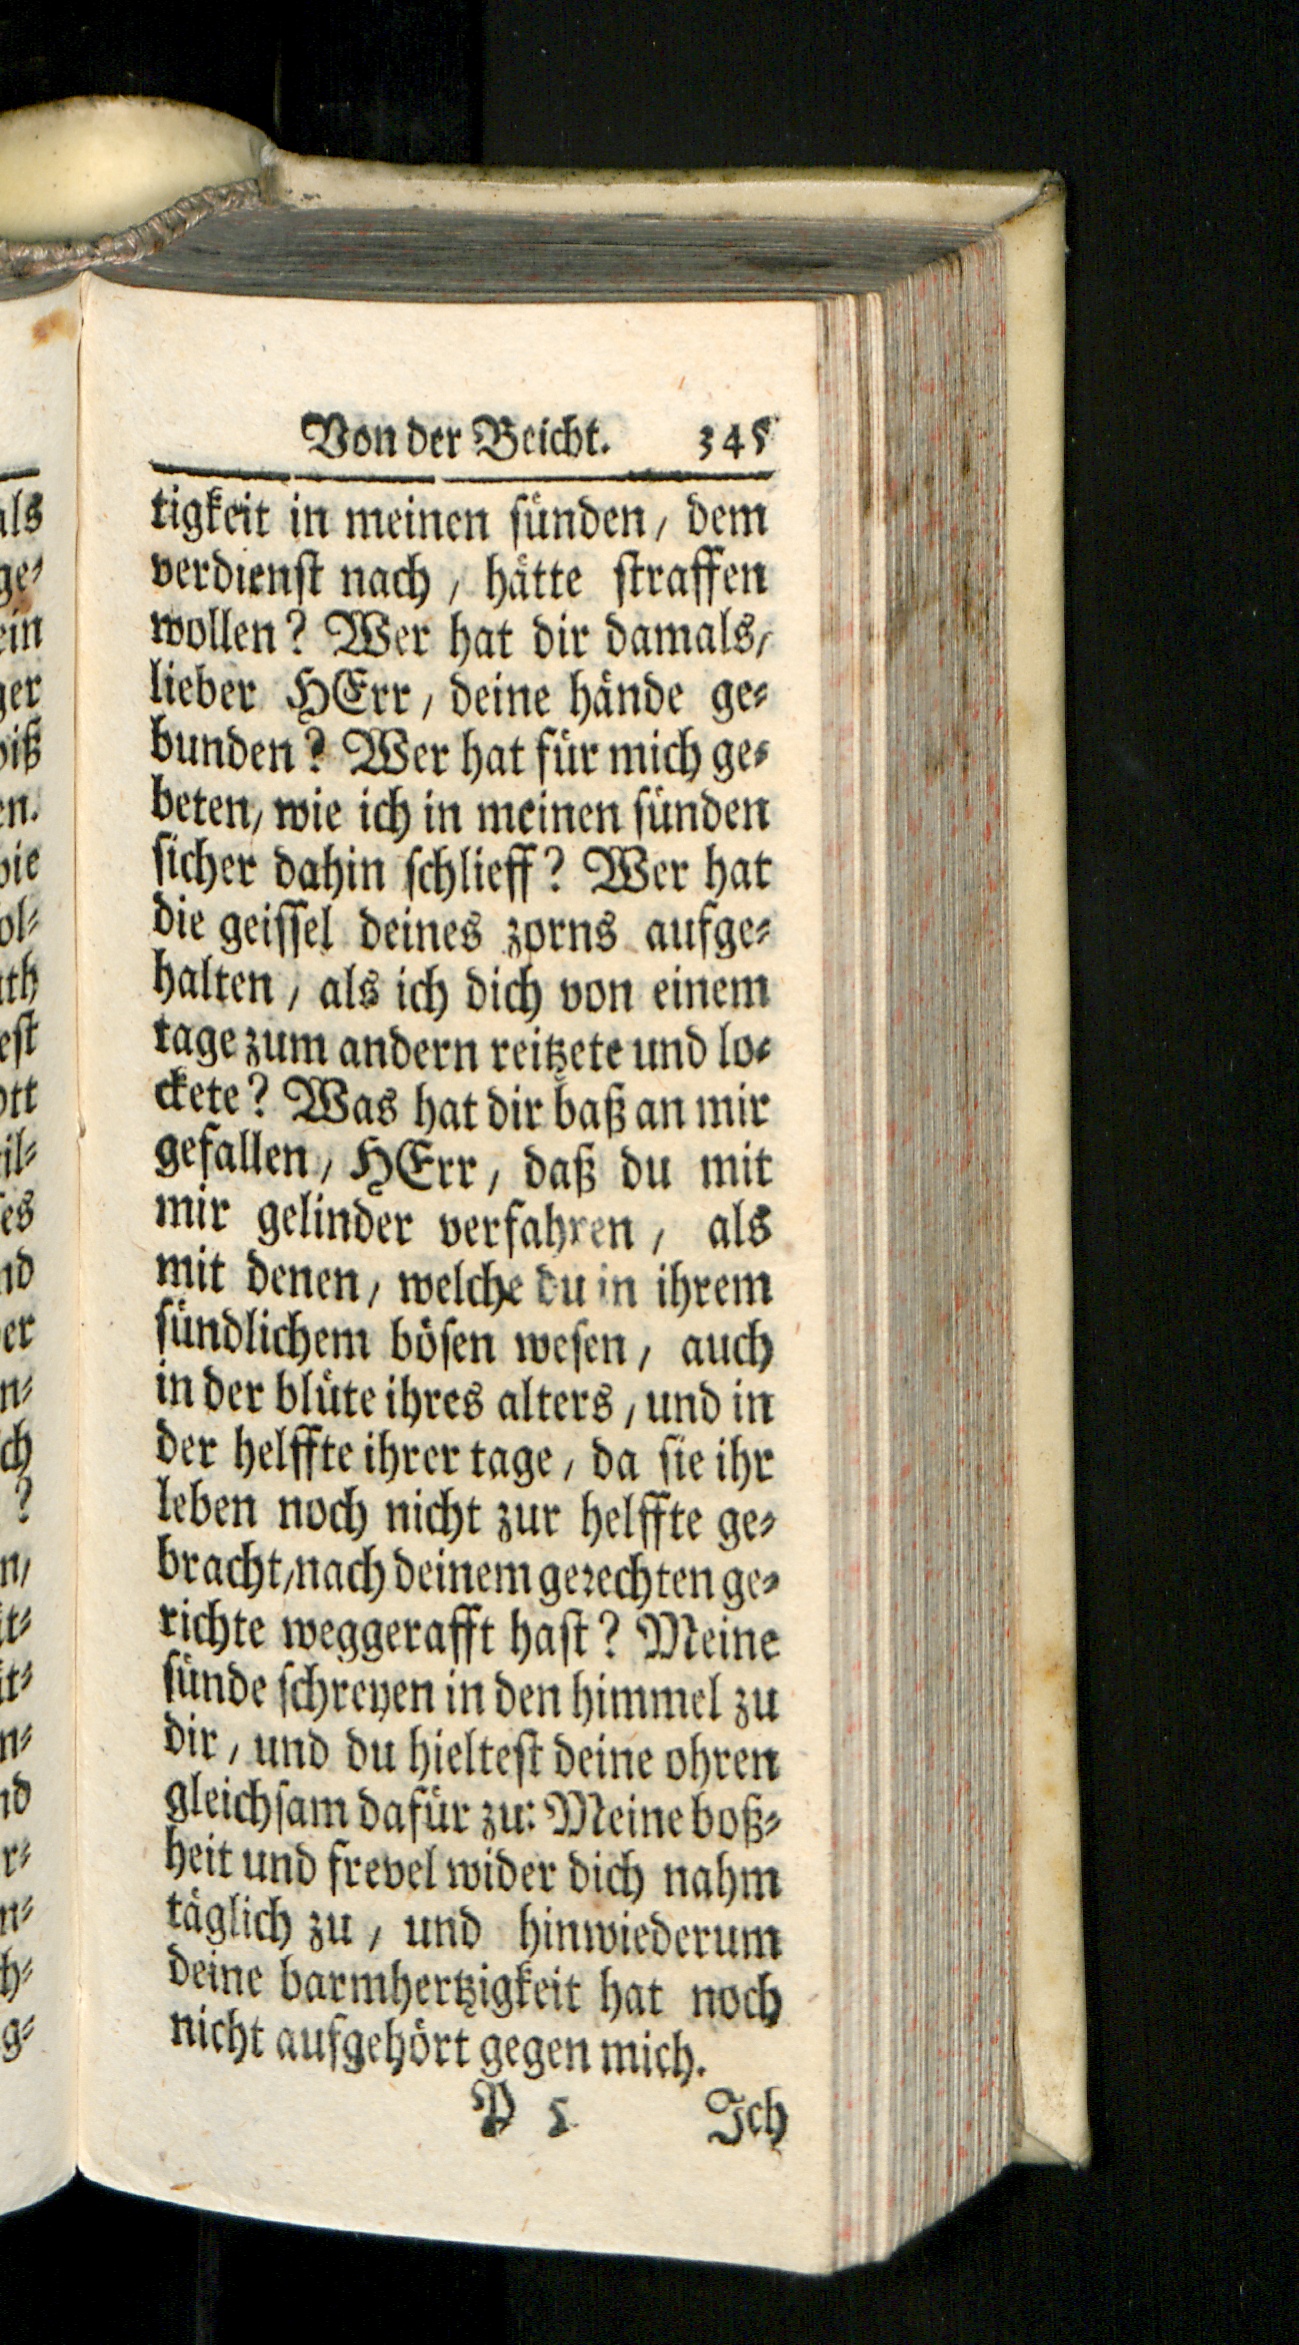 Von der Beicht. 345
tigkeit in meinen sünden, dem
verdienst nach, hätte straffen
wollen? Wer hat dir damals,
lieber HErr, deine hände ge-
bunden? Wer hat für mich ge-
beten, wie ich in meinen sünden
sicher dahin schlieff? Wer hat
die geissel deines zorns aufge-
halten, als ich dich von einem
tage zum andern reitzete und lo-
ckete? Was hat dir baß an mir
gefallen, HErr, daß du mit
mir gelinder verfahren, als
mit denen, welche du in ihrem
sündlichem bösen wesen, auch
in der blüte ihres alters, und in
der helffte ihrer tage, da sie ihr
leben noch nicht zur helffte ge-
bracht, nach deinem gerechten ge-
richte weggerafft hast? Meine
sünde schreyen in den himmel zu
dir, und du hieltest deine ohren
gleichsam dafür zu: Meine boß-
heit und frevel wider dich nahm
täglich zu, und hinwiederum
deine barmhertzigkeit hat noch
nicht aufgehört gegen mich.
P 5 Ich